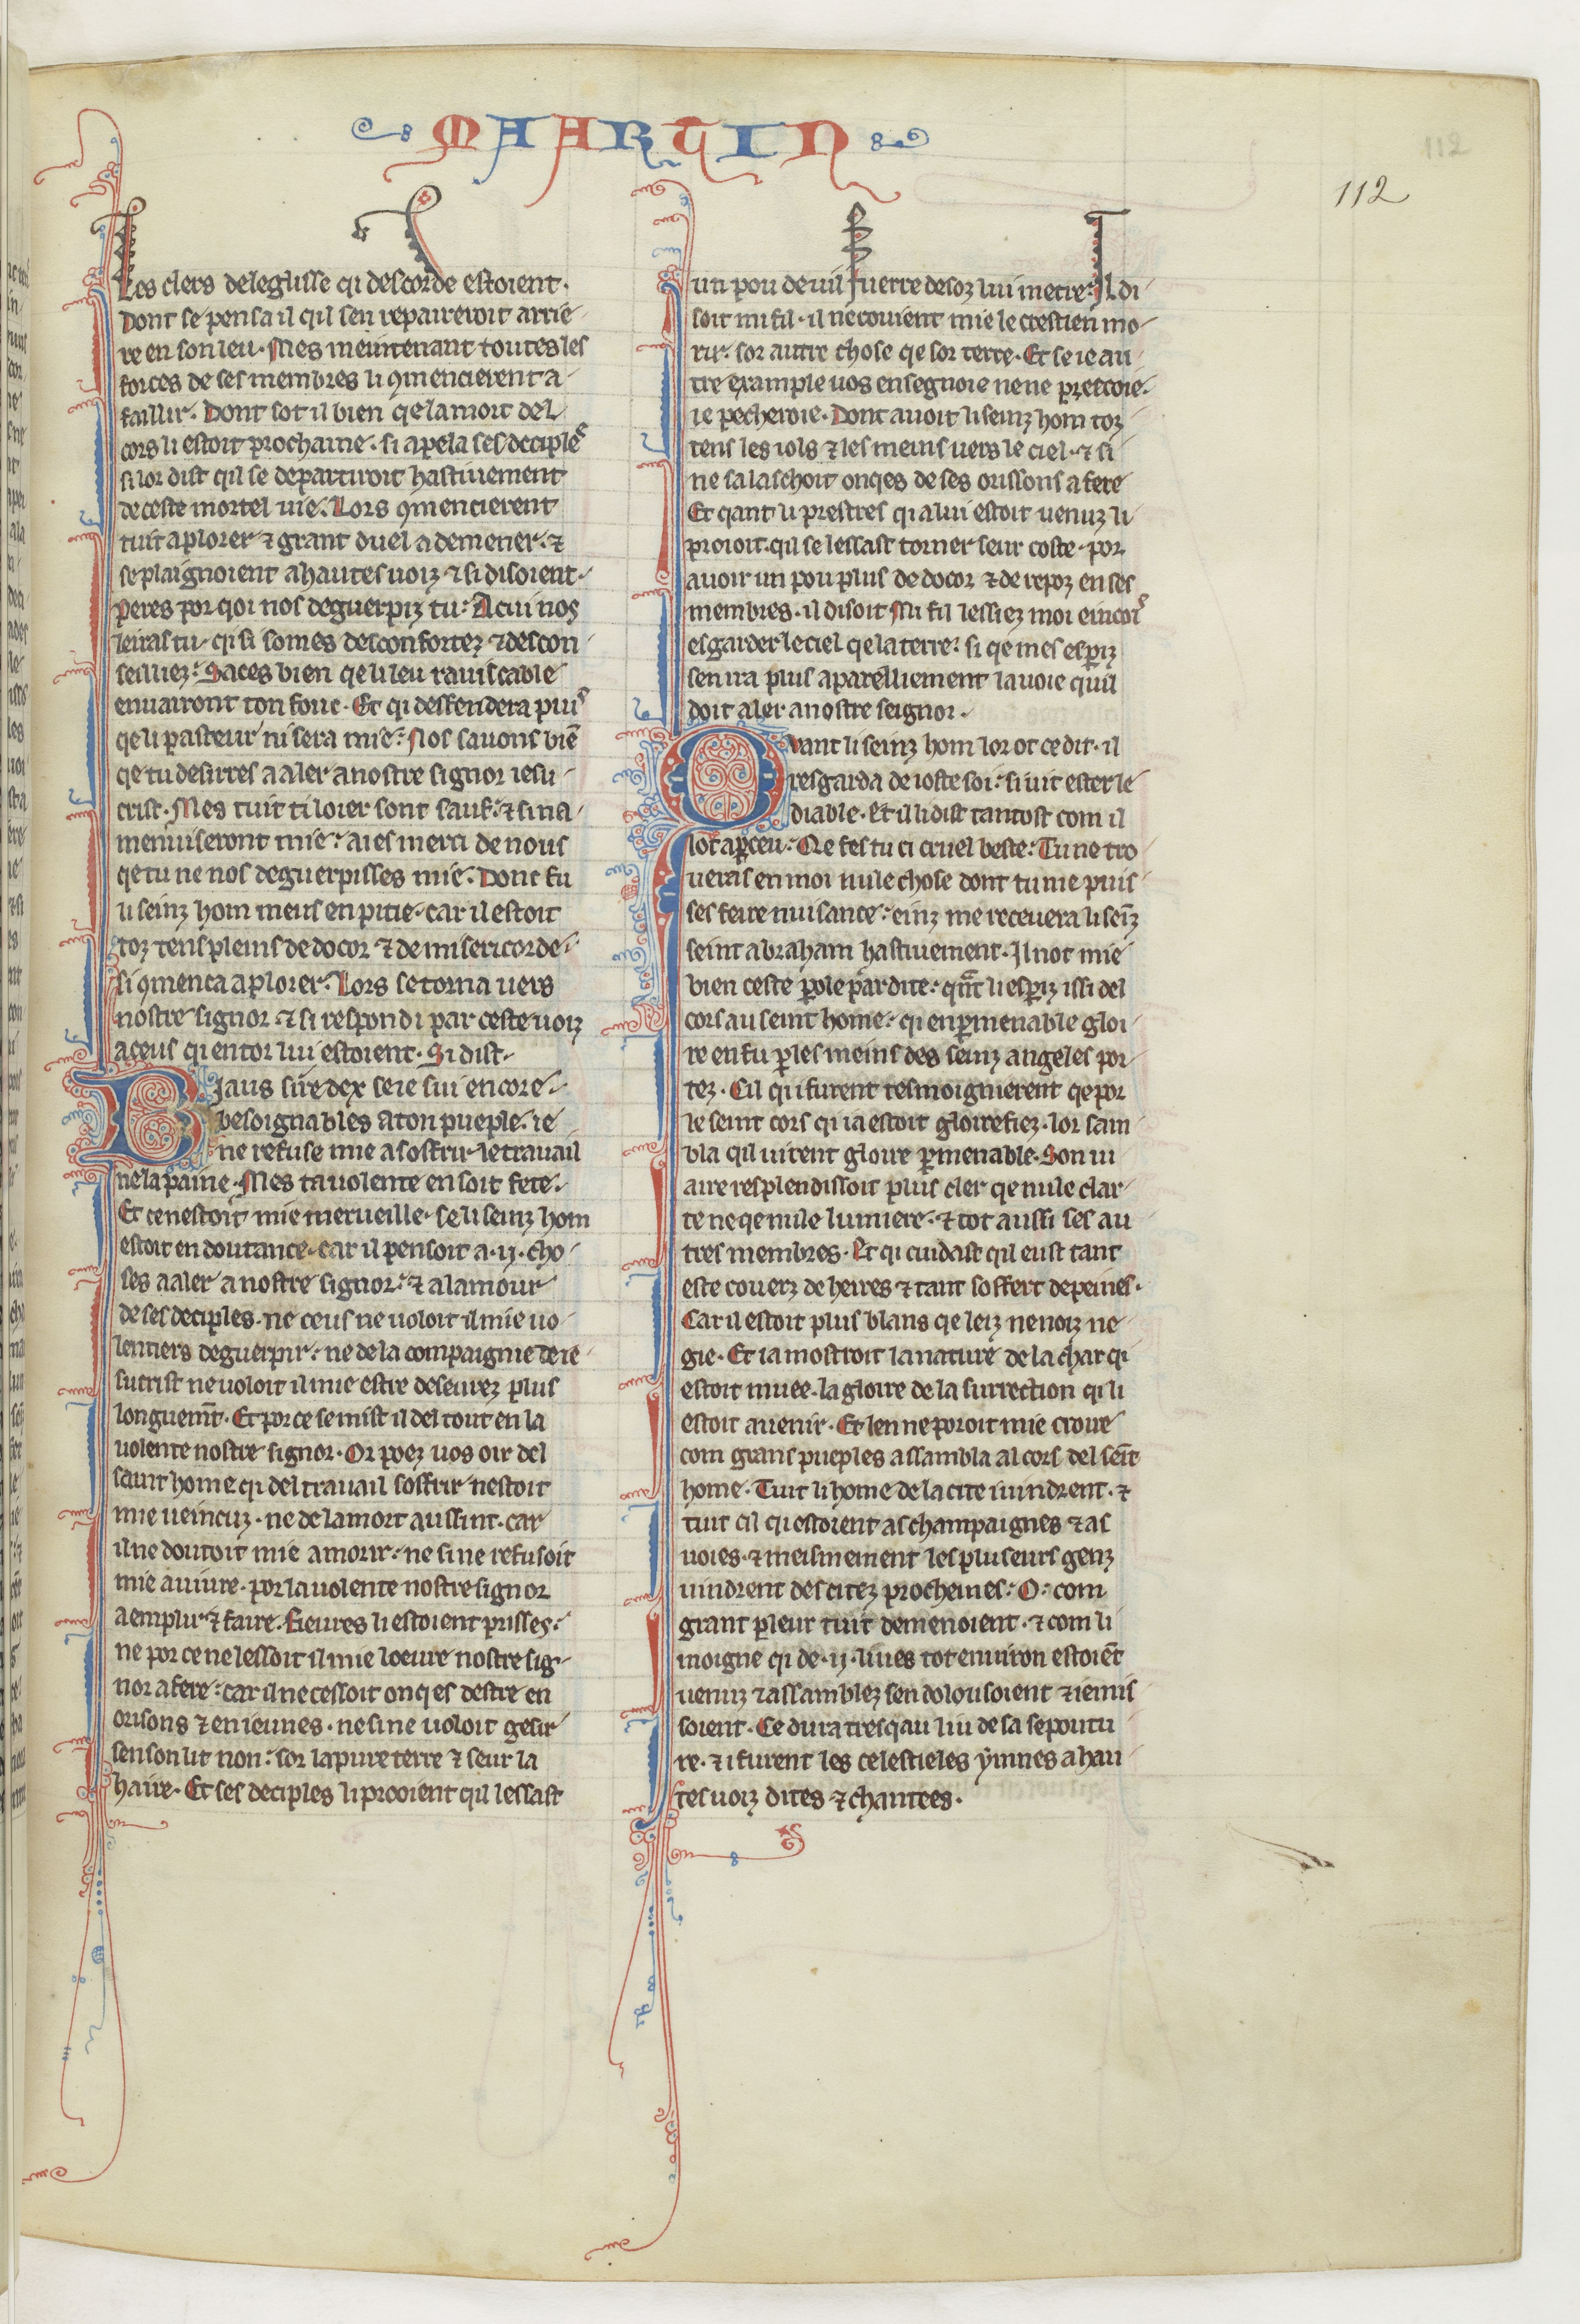 MAARTIN
112
112
Les clers deleglisse qi descorde estoient.
Dont se pensa il qil sen repaireroit arrie
re en son leu. Mes meintenant toutes les
forces de ses membres li ꝯmencierent a
faillir. Dont sot il bien qe la mort del
cors li estoit prochaine. si apela ses deciples
si lor dist qil se departiroit hastiuement
de ceste mortel uie. Lors ꝯmencierent
tuit a plorer ⁊ grant duel a demener. ⁊
se plaignoient a hautes uoiz ⁊ si disoient.
Peres por qoi nos deguerpiz tu: A cui nos
leiras tu. qi si somes desconfortez ⁊ descon
seilliez: Saces bien qe li leu rauiscable
enuairont ton fouc. Et qi deffendera puis
qe li pasteur ni sera mie: Nos sauons biē
qe tu desirres a aler a nostre signor iesu
crist. Mes tuit ti loier sont sauf. ⁊ si na
menuiseront mie: aies merci de nous
qe tu ne nos deguerpisses mie. Donc fu
li seinz hom meus en pitie. car il estoit
toz tens pleins de docor ⁊ de misericorde.
si ꝯmenca a plorer. Lors se torna uers
nostre signor ⁊ si respondi par ceste uoiz
a ceus qi entor lui estoient. Si dist.
Biaus sire dex se ie sui encore
besoignables a ton pueple. ie
ne refuse mie a soffrir le trauail
ne la paine. Mes ta uolente en soit fete.
Et ce nestoit mie merueille. se li seinz hom
estoit en doutance. car il pensoit a .ij. cho
ses a aler a nostre signor. ⁊ a lamour
de ses deciples. ne ceus ne uoloit il mie uo
lentiers deguerpir. ne de la compaignie de ie
sucrist ne uoloit il mie estre deseurez plus
longuemt̄. Et por ce se mist il del tout en la
uolente nostre signor. Or poez uos oir del
saint home qi del trauail soffrir nestoit
mie ueincuz. ne de la mort aussint. car
il ne doutoit mie a morir. ne si ne refusoit
mie a uiure. por la uolente nostre signor
aemplir ⁊ faire. Fieures li estoient prisses.
ne por ce ne lessoit il mie loeure nostre sig
nor a fere. car il ne cessoit onqes destre en
orisons ⁊ en ieunes. ne si ne uoloit gesir
en son lit non: sor la pure terre ⁊ seur la
haire. Et ses deciples li prooient qil lessast
un pou de uil fuerre desoz lui metre. Il di
soit mi fil. il ne couient mie le crestien mo
rir. sor autre chose qe sor terre. Et se ie au
tre example uos ensegnoie
ie pecheroie. Dont auoit li seinz hom toz
tens les iols ⁊ les meins uers le ciel. ⁊ si
ne salaschoit onqes de ses orissons a fere
Et qant li prestres qi a lui estoit uenuz li
proioit. qil se lessast torner seur coste. por
auoir un pou plus de docor ⁊ de repoz en ses
membres. il disoit Mi fil lessiez moi eincois
esgarder le ciel qe la terre. si qe mes esꝑiz
sen ira plus aparelliement la uoie quil
doit aler a nostre seignor.
Qvant li seinz hom lor ot ce dit. il
resgarda de ioste soi. si uit ester le
diable. Et il li dist tantost com il
lot aꝑceu. Qe fes tu ci cruel beste. Tu ne tro
ueras en moi nule chose dont tu me puis
ses feire nuisance. einz me receuera li seīz
seint abraham hastiuement. Il not mie
bien ceste ꝑole ꝑar dite. qnt̄ li esꝑiz issi del
cors au seint home. qi en ꝑmenable gloi
re en fu ꝑ les meins des seinz angeles por
tez. Cil qi furent tesmoignierent qe por
le seint cors qi ia estoit glorefiez. lor sam
bla qil uirent gloire ꝑmenable. Son ui
aire resplendissoit plus cler qe nule clar
te ne qe nule lumiere. ⁊ tot aussi ses au
tres membres. Et qi cuidast qil eust tant
este couerz de heires ⁊ tant soffert de peines.
Car il estoit plus blans qe leiz ne noiz ne
gie. Et ia mostroit la nature de la char qi
estoit muee. la gloire de la surrection qi li
estoit auenir. Et len ne poroit mie croire
com grans pueples assambla al cors del seīt
home. Tuit li home de la cite i uindrent. ⁊
tuit cil qi estoient as champaignes ⁊ as
uoies. ⁊ meismement les pluseurs genz
uindrent des citez procheines. O. com
grant pleur tuit demenoient. ⁊ com li
moigne qi de .ij. liues tot enuiron estoiēt
uenuz ⁊ assamblez sen dolousoient ⁊ iemis
soient. Ce dura tresqau liu de sa sepoutu
re. ⁊ i furent les celestieles ymnes a hau
tes uoiz dites ⁊ chantees.